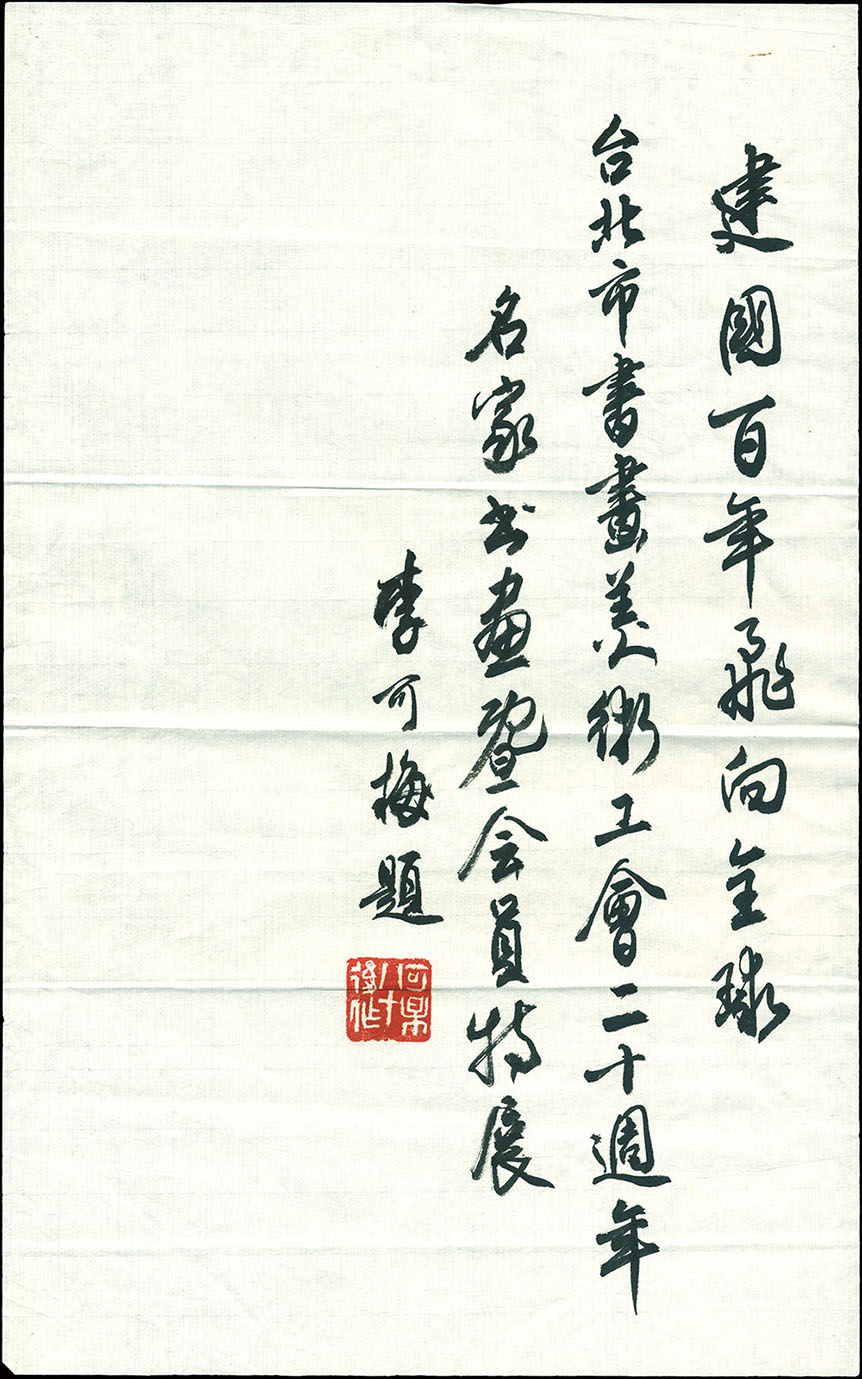 建國百年飛向全球
台北市書畫美術工會二十週年
名家书畫暨会員特展
李可梅題
可某八十後作